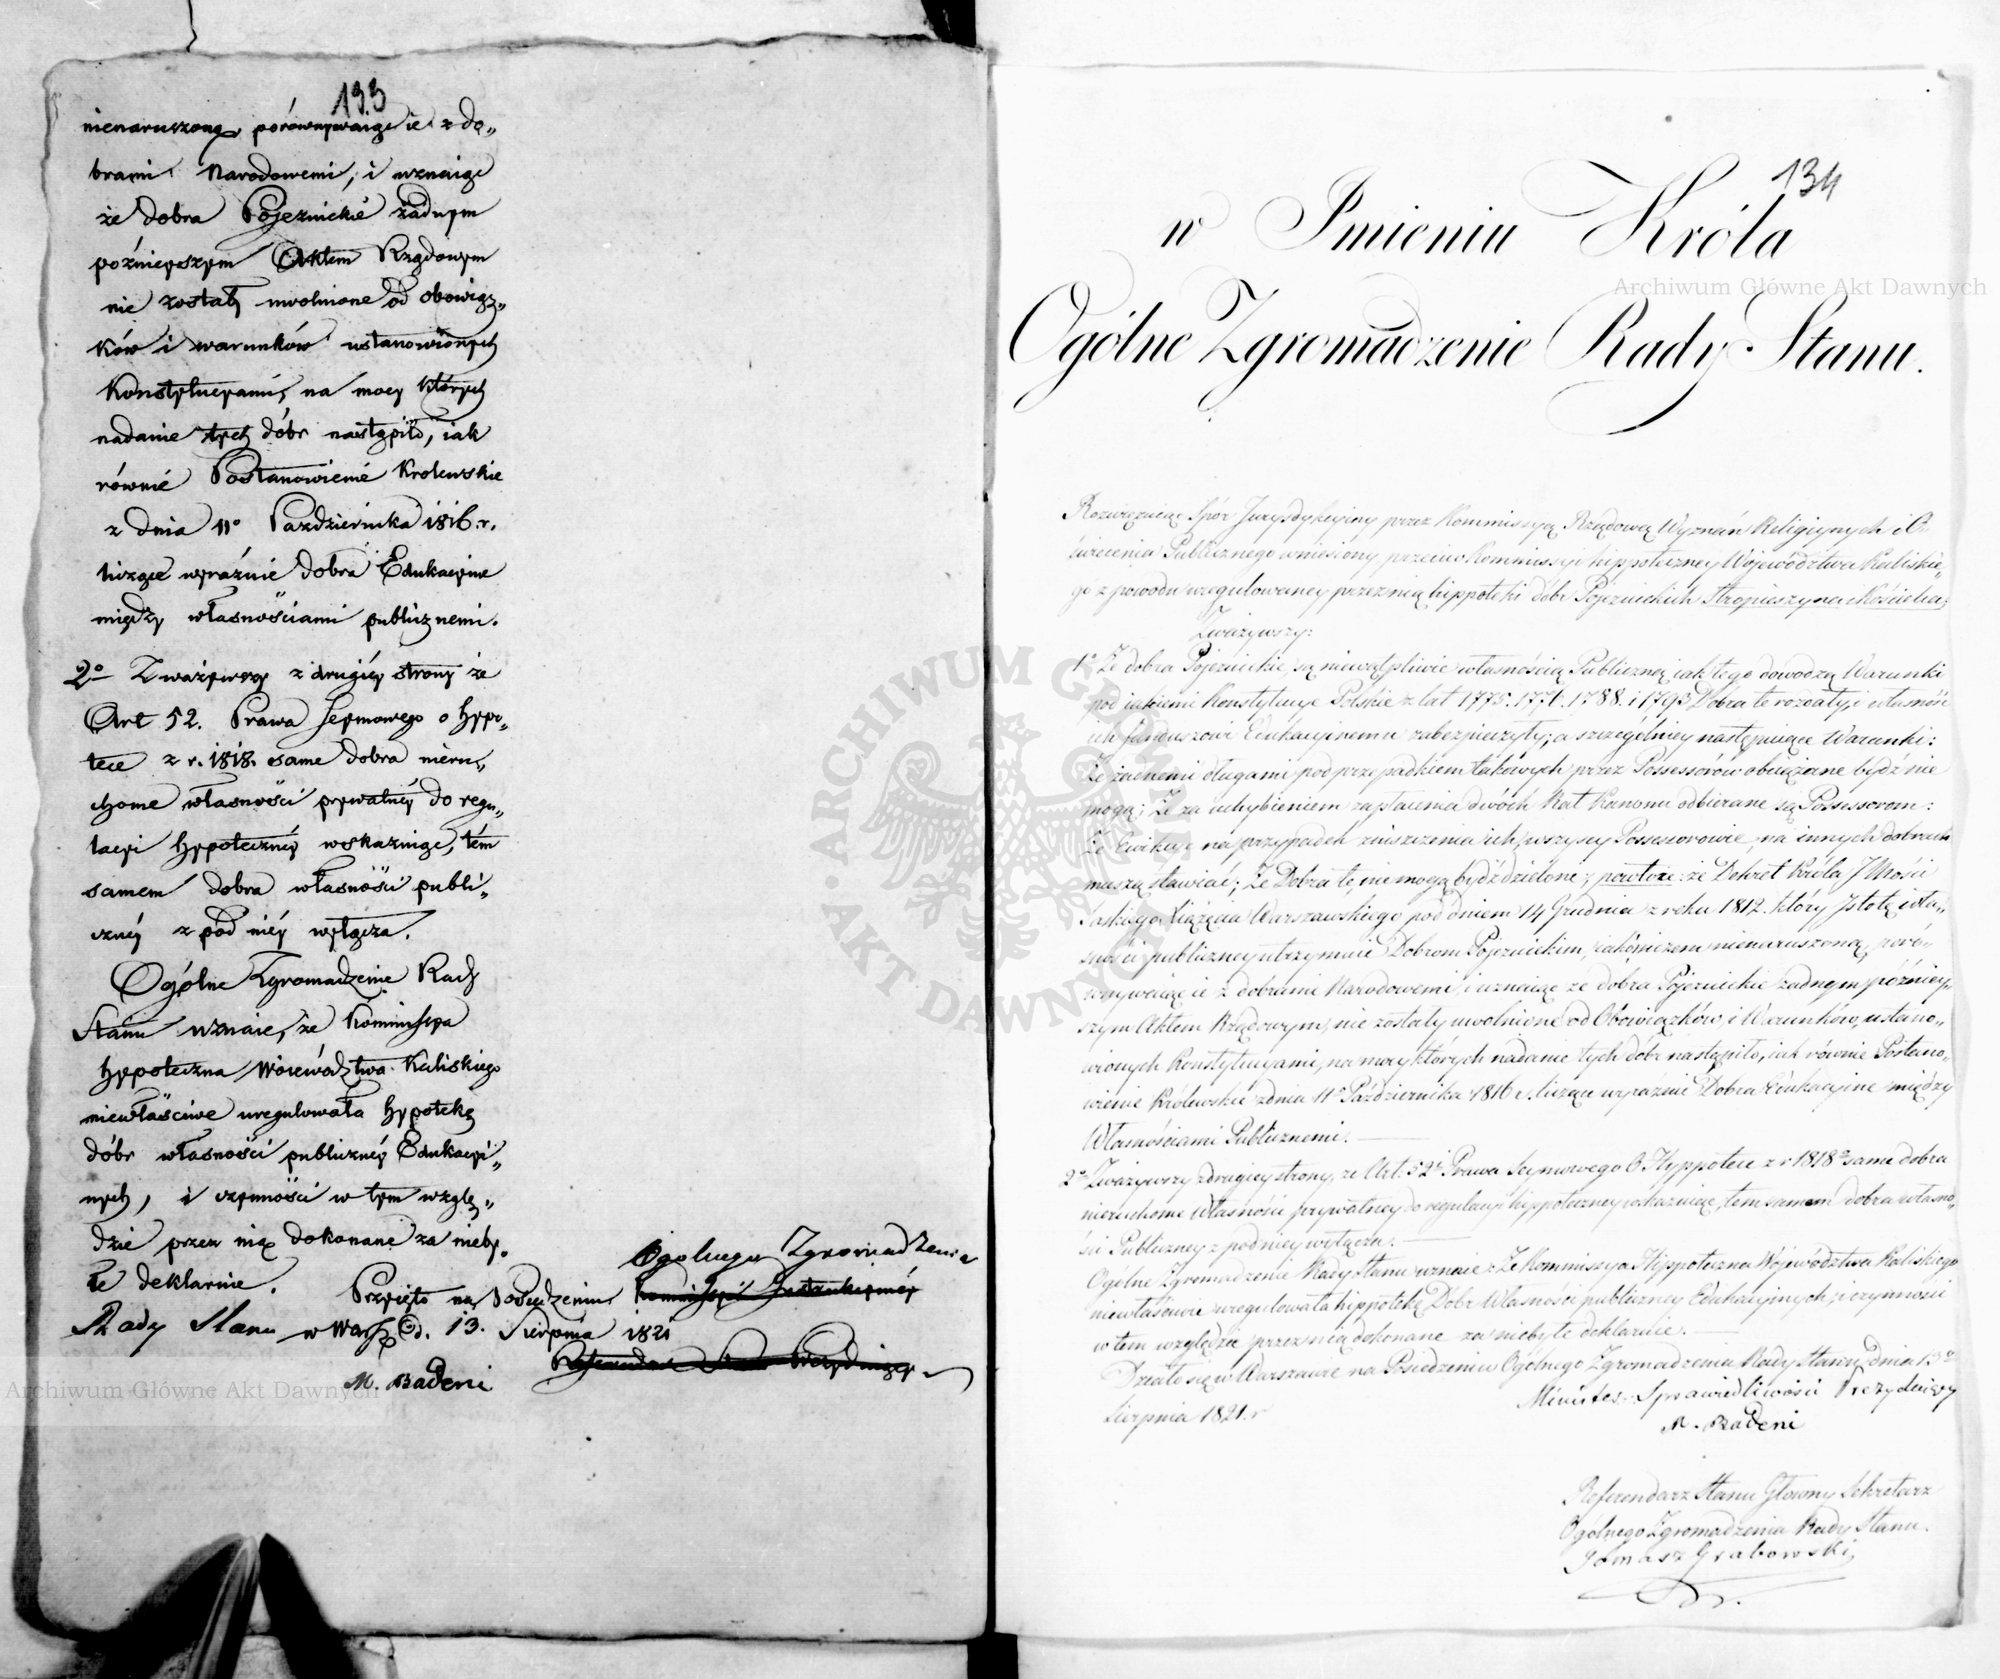 133
nienaruszoną, porównywaiące ie z do„
brami Narodowemi, i uznaiąc
że dobra Pojezuickie żadnym
poźnieyszym Aktem Rządowym
nie zostały uwolnione od obowiąz„
ków i warunków ustanowionych
Konstytucyami, na mocy których
nadanie tych dóbr nastąpiło, iak
równie Postanowienie Krolewskie
z dnia 11º Pazdziernika 1816. r.
liczące wyraźnie dobra Edukacyine
między własnościami publicznemi.
2º Zważywszy z drugiéy strony że
Art 52. Prawa Seymowego o hypo„
tece z r. 1818. same dobra nieru„
chome własności prywatnéy do regu„
lacyi hypotecznéy wskazuiąc, tém
samem dobra własności publi„
cznéy z pod niéy wyłącza.
Ogólne Zgromadzenie Rady
Stanu uznaie, że Kommissya
hypoteczna Woiewództwa Kaliskiego
niewłaściwie uregulowała hypotekę
dóbr własności publicznéy Edukacyi„
nych, i czynności w tym wzglę„
dzie przez nią dokonane za nieby„
łe deklaruie.
Przyięto na Posiedzeniu Ogolnego Zgromadzenia
Kommissyi
Rady Stanu w Warsz. d. 13. Sierpnia 1821
Referendarz Stanu Prezyduiący
M. Badeni
134
w Imieniu Króla
Ogólne Zgromadzenie Rady Stanu.
Rozwiązuiąc Spór Jurysdykcyiny przez Kommissyą Rządową Wyznań Religiynych i O„
świecenia Publicznego wniesiony przeciw Kommissyi hippoteczney Województwa Kaliskie„
go z powodu uregulowaney przez nią hippoteki dóbr Pojezuickich Stropieszyna Kościelna;
Zważywszy:
1º Że dobra Pojezuickie, są niewątpliwie własnością Publiczną, iak tego dowodzą Warunki
pod iakiemi Konstytucye Polskie z lat 1775. 1776. 1788. i 1793 Dobra te rozdały, i własność
ich funduszowi Edukacyinemu zabezpieczyły; a szczególniey następuiące Warunki:
Że żadnemi długami pod przepadkiem takowych przez Possessorów obciążane bydź nie
mogą; Że za uchybieniem zapłacenia dwóch Rat Kanonu odbierane są Possessorom:
Że Ewikcyę na przypadek zniszczenia ich, wszyscy Possessorowie, na innych dobrach
muszą stawiać; Że Dobra te, nie mogą bydź dzielone; powtóre: że Dekret Króla J Mości
Saskiego Xiążęcia Warszawskiego pod dniem 14 Grudnia z roku 1812. który Istotę wła„
sności publiczney utrzymuie Dobrom Pojezuickim, nienaruszoną, poró„
wnywaiąc ie z dobrami Narodowemi, i uznaiąc że dobra Pojezuickie żadnym późniey„
szym Aktem Rządowym, nie zostały uwolnione od Obowiązków, i Warunków, ustano„
wionych Konstytucyami, na mocy których nadanie tych dóbr nastąpiło, iak równie Postano„
wienie Królewskie z dnia 11º Października 1816 r. licząc wyraźnie Dobra Edukacyine między
Własnościami Publicznemi.
2º Zważywszy z drugiey strony, że Art. 52. Prawa Seymowego O Hyppotece z r 1818º same dobra
nieruchome Własności prywatney do regulacyi hippoteczney wskazuiąc, tem samem dobra własno„
ści Publiczney z pod niey wyłącza.
Ogólne Zgromadzenie Rady Stanu uznaie: Że Kommissya Hippoteczna Województwa Kaliskiego
niewłaściwie uregulowała hippotekę Dobr Własności publiczney Edukacyinych, i czynności
w tem względzie przez nią dokonane za niebyłe deklaruie.
Działo się w Warszawie na Posiedzeniu Ogólnego Zgromadzenia Rady Stanu, dnia 13º
Sierpnia 1821. r
Minister Sprawiedliwości Prezyduiący
M. Badeni
Referendarz Stanu Główny Sekretarz
Ogólnego Zgromadzenia Rady Stanu.
Tomasz Grabowski
Archiwum Główne Akt Dawnych
Archiwum Główne Akt Dawnych
ARCHIWUM GŁÓWNE AKT DAWNYCH